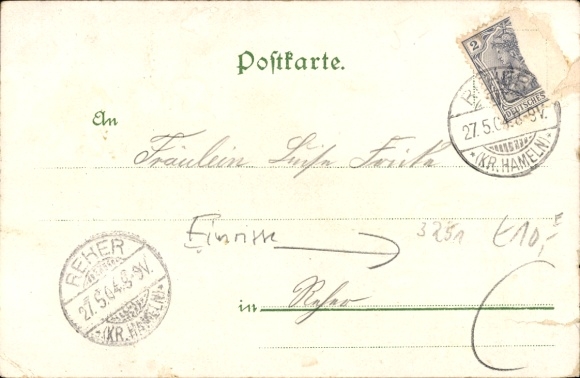 Postkarte.
2
DEUTSCHES
REHER
27.5.04.8-9V.
*(KR. HAMELN)*
An
Fräulein Luise Fricke
Einrisse
3251
€10,-
REHER
27.5.04.8-9V.
*(KR. HAMELN)*
in Reher